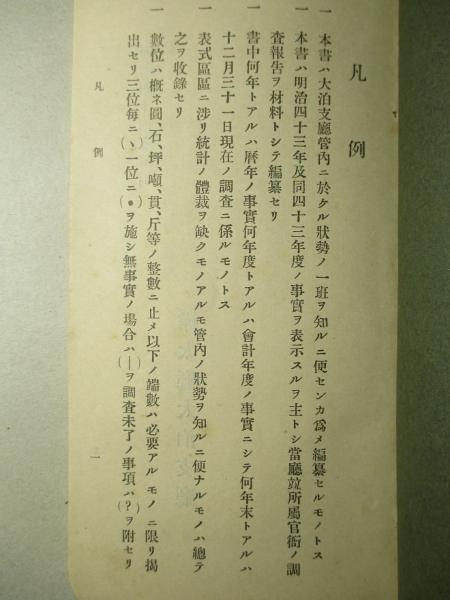 凡例
一 本書ハ大泊支廳管內ニ於ケル狀勢ノ一班ヲ知ルニ便センカ爲メ編纂セルモノトス
一 本書ハ明治四十三年及同四十三年度ノ事實ヲ表示スルヲ主トシ當廳竝所屬官衙ノ調
查報吿ヲ材料トシテ編纂セリ
一 書中何年トアルハ曆年ノ事實何年度トアルハ會計年度ノ事實ニシテ何年末トアルハ
十二月三十一日現在ノ調査ニ係ルモノトス
一 表式區區ニ涉リ統計ノ體裁ヲ缺クモノアルモ管內ノ狀勢ヲ知ルニ便ナルモノハ總テ
之ヲ收錄セリ
一 數位ハ概ネ圓、石、坪、噸、貫、斤等ノ整數ニ止メ以下ノ端數ハ必要アルモノニ限リ揭
出セリ三位每ニ(、)一位ニ(●)ヲ施シ無事實ノ場合ハ(—)ヲ調査未了ノ事項ハ(?)ヲ附セリ
凡例
一